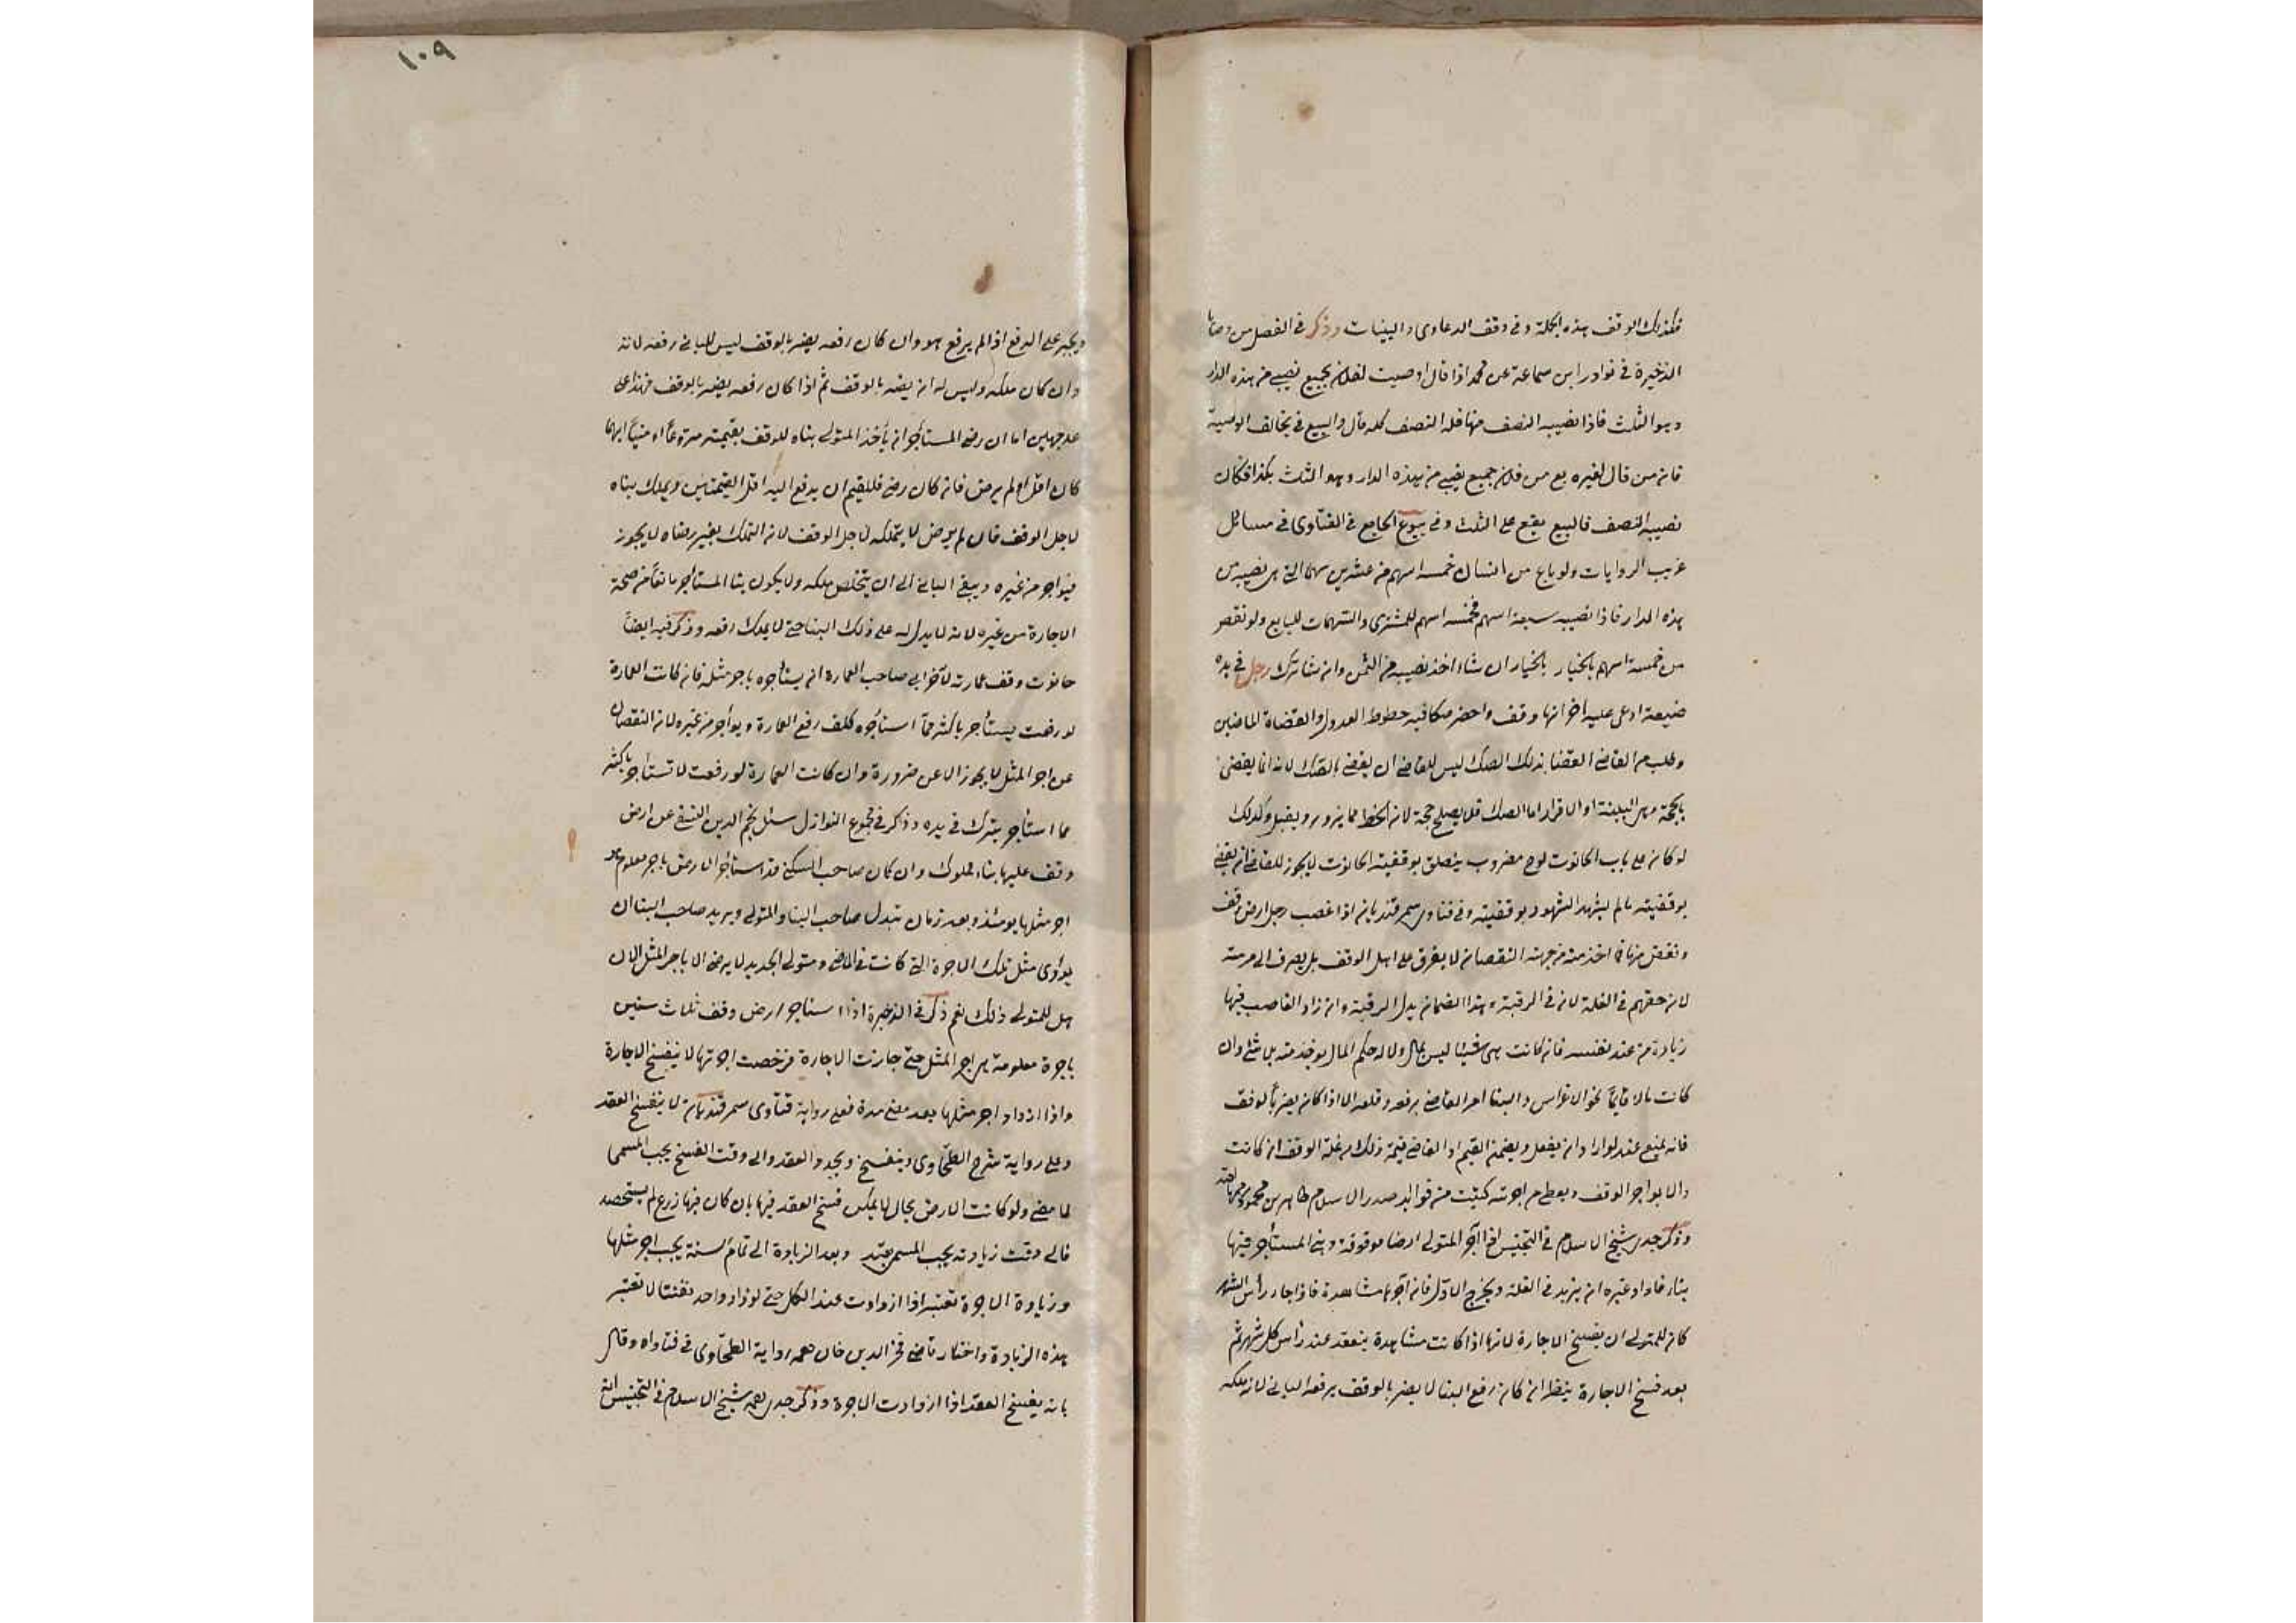 فكذلك الوقف بهذه الجملة وفي وقف الدعاوى والبينات وذكر في الفصل من وصايا
الذخيرة في نوادر ابن سماعة عن محمد اذا قال اوصيت لفلان بجميع نصيبي من هذه الدار
وهو الثلث فاذا نصيبه النصف منها فله النصف كله قال والبيع في يخالف الوصية
فان من قال لغيره بع من فلان جميع نصيبي من هذه الدار وهو الثلث بكذا فكان
نصيبه النصف فالبيع يقع على الثلث وفي بيوع الجامع في الفتاوى في مسائل
غريب الروايات ولو باع من انسان خمسة اسهم من عشرين سهما التي هي نصيبه من
هذه الدار فاذا نصيبه سبعة اسهم فخمسة اسهم للمشتري والسهمان للبايع ولو نقص
من خمسة اسهم بالخيار بالخيار ان شاء اخذ نصيبه من الثمن وان شا ترك رجل في يده
ضيعة ادعى عليه اخر انها وقف واحضر صكا فيه خطوط العدول والقضاة الماضين
وطلب من القاضي القضا بذلك الصك ليس للقاضي ان يقضي بالصك لانه انما يقضى
بالحجة وهي البينة او الاقرار اما الصك فلا يصلح حجة لان الخط مما يزور ويفتعل وكذلك
لو كان على باب الحانوت لوح مضروب ينطق بوقفيته الحانوت لا يجوز للقاضي ان يقضي
بوقفيته مالم يشهد الشهود بوقفيته وفي فتاوى سمرقند بان اذا غصب رجل ارض وقف
ونقص منها فما اخذ منه من جهة النقصان لا يفرق على اهل الوقف بل يصرف الى مرمته
لان حقهم في الغلة لا في الرقبة وهذا الضمان بدل الرقبة وان زاد الغاصب فيها
زيادة من عند نفسه فان كانت هي شيئا ليس بمال ولا له حكم المال يوخذ منه بلا شئ وان
كانت مالا قايما نحو الاغراس والبنا امر القاضي برفعه وقلعه الا اذا كان يضر بالوقف
فانه يمنع عنه لو اراد ان يفعل ويضمن القيم او القاضي قيمة ذلك من غلة الوقف ان كانت
والا يواجر الوقف ويعطى من اجرته كتبت من فوائد صدر الاسلام طاهر بن محمود
وذكر جدي شيخ الاسلام في التجنيس اذا آجر المتولي ارضا موقوفة وبنى المستأجر فيها
بناء فاراد غيره ان يزيد في الغلة ويخرج الاول فان آجرها مشاهرة فاذا جاء رأس الشهر
كان للمتولي ان يفسخ الاجارة لانها اذا كانت مشاهرة ينعقد عند رأس كل شهر ثم
بعد فسخ الاجارة ينظر ان كان رفع البنا لا يضر بالوقف يرفعه الباني لانه ملكه
١٠٩
ويجبر على الرفع اذا لم يرفع هو وان كان رفعه يضر بالوقف ليس للباني رفعه لانه
وان كان ملكه وليس له ان يضر بالوقف ثم اذا كان رفعه يضر بالوقف فهذا على
على وجهين اما ان رضي المستأجر ان يأخذ المتولي بناه للوقف بقيمته منزوعا او مبنيا ايهما
كان اقل او لم يرض فان كان رضي فللقيم ان يدفع اليه اقل القيمتين ويملك بناه
لاجل الوقف فان لم يرض لا يتملكه لاجل الوقف لان التملك بغير رضاه لا يجوز
فيواجر من غيره ويبقى الباني الى ان يتخلص ملكه ولا يكون بنا المستأجر مانعا من صحة
الاجارة من غيره لانه لا يدل له على ذلك البنا حتى لا يملك رفعه وذكر فيه ايضا
حانوت وقف عمارته لآخر ابى صاحب العمارة ان يستأجره باجر مثله فان كانت العمارة
لو رفعت يستأجر باكثر مما استأجره كلف رفع العمارة ويواجر من غيره لان النقصان
عن اجر المثل لا يجوز الا عن ضرورة وان كانت العمارة لو رفعت لا تستاجر باكثر
مما استأجر يترك في يده وذكر في مجموع النوازل سئل نجم الدين النسفي عن ارض
وقف عليها بناء مملوك وان كان صاحب السكنى قد استأجر الارض باجر معلوم هو
اجر مثلها يومئذ وبعد زمان تبدل صاحب البنا والمتولي ويريد صاحب البنا ان
يؤدى مثل تلك الاجرة التي كانت في الماضي ومتولي الجديد لا يرضى الا باجر المثل الان
هل للمتولي ذلك نعم ذكر في الذخيرة اذا استاجر ارض وقف ثلاث سنين
باجرة معلومة هي اجر المثل حتى جازت الاجارة فرخصت اجرتها لا ينفسخ الاجارة
واذا ازداد اجر مثلها بعد مضي مدة فعلى رواية فتاوى سمرقند بان لا ينفسخ العقد
وعلى رواية شرح الطحاوى ينفسخ ويجدد العقد والى وقت الفسخ يجب المسمى
لما مضى ولو كانت الارض بحال لا يمكن فسخ العقد فيها بان كان فيها زرع لم يستحصد
فالى وقت زيادته يجب المسمى بقدره وبعد الزيادة الى تمام السنة يجب اجر مثلها
وزيادة الاجرة تعتبر اذا ازدادت عند الكل حتى لو زاد واحد تعنتا لا تعتبر
هذه الزيادة واختار قاضي فخر الدين خان رحمه رواية الطحاوى في فتاواه وقال
بانه يفسخ العقد اذا ازدادت الاجرة وذكر جدي رحمه شيخ الاسلام في التجنيس انه